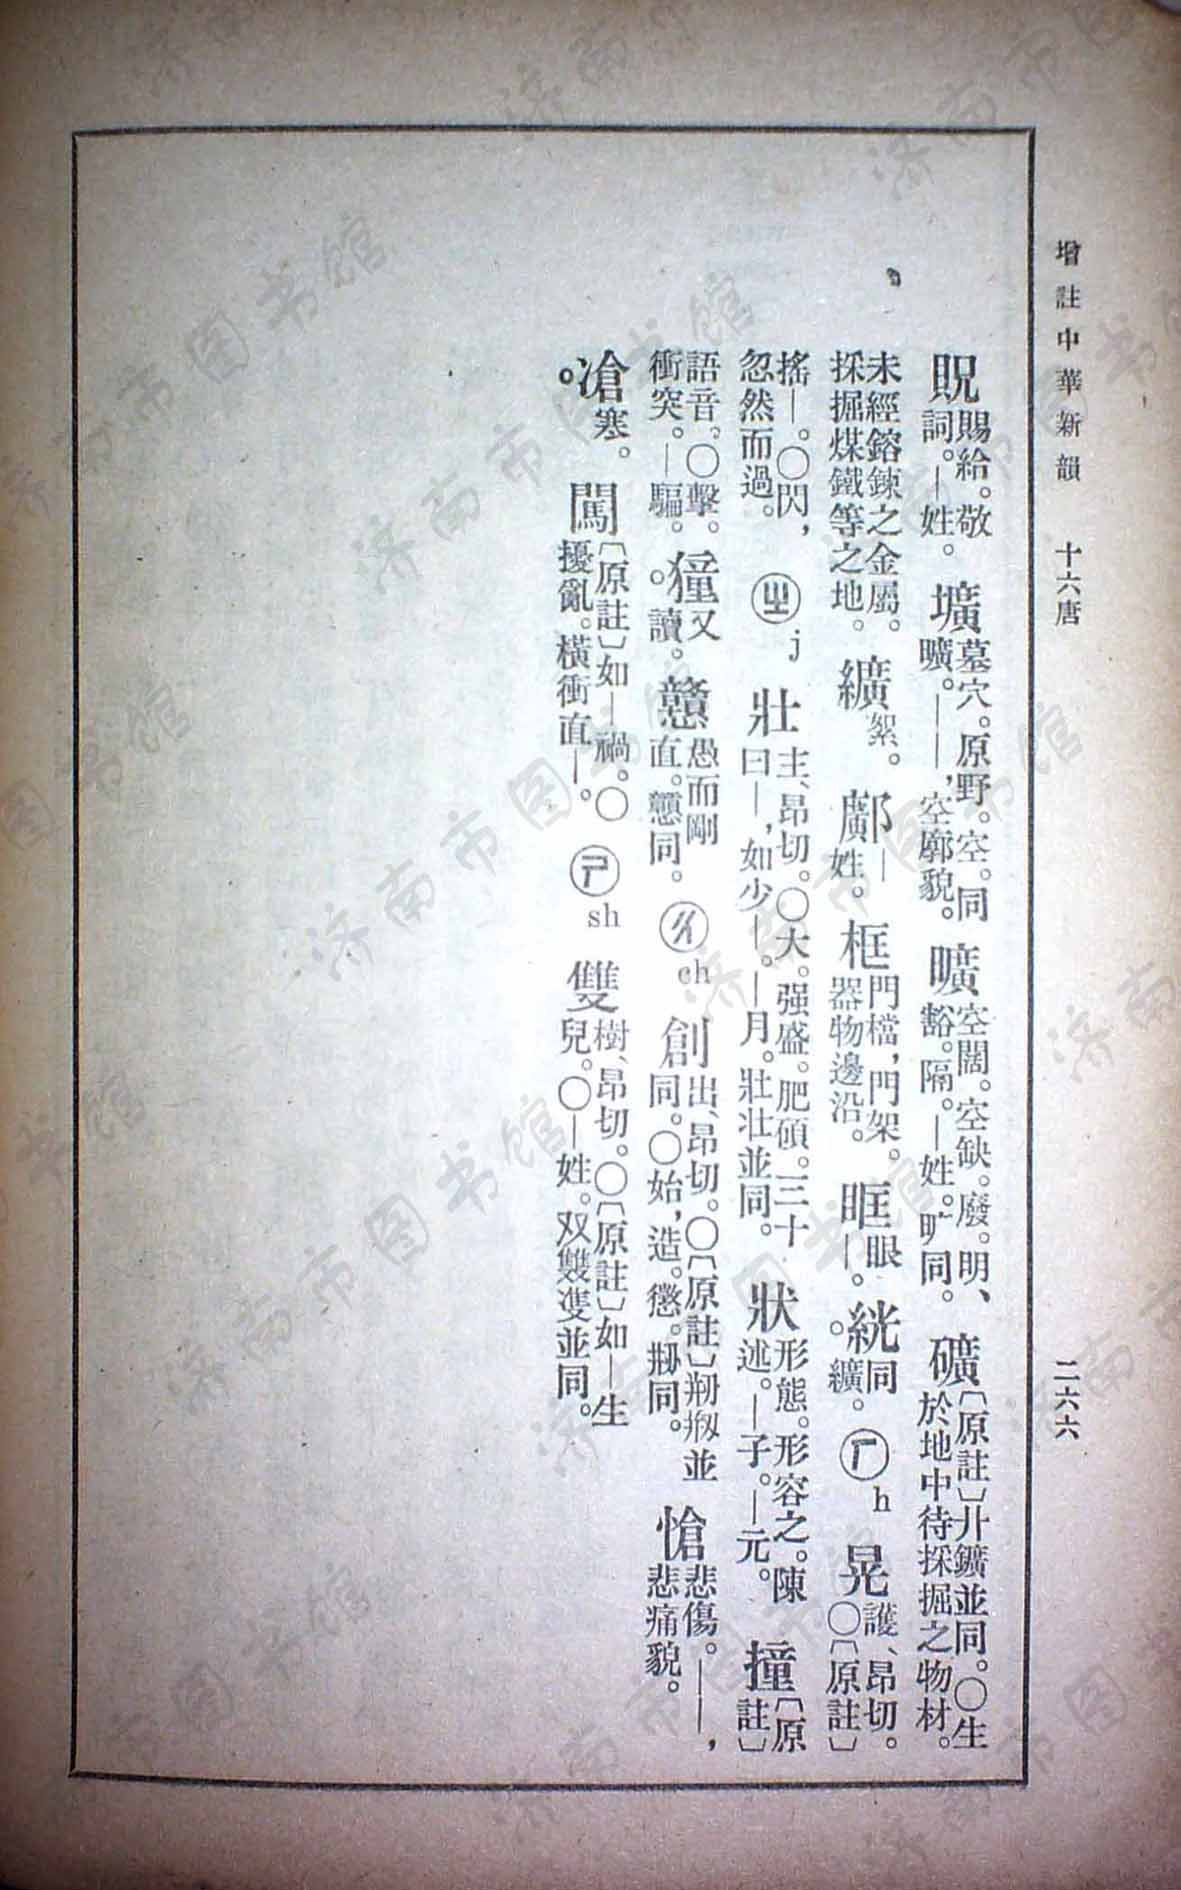 增註中華新韻　十六唐　二六六
貺賜給。敬詞。—姓。　壙墓穴。原野。空。同曠。——，空廓貌。　曠空闊。空缺。廢。明、豁。隔。—姓。昿同。　礦〔原註〕卝鑛並同。〇生於地中待採掘之物材。
未經鎔鍊之金屬。採掘煤鐵等之地。　纊絮。　鄺—姓。　框門檔，門架。器物邊沿。　眶眼—。　絖同纊。　㋀ㄏ h　晃護、昂切。〇〔原註〕
搖—。〇閃，忽然而過。　ㄓ j　壯主、昂切。〇大。强盛。肥碩。三十曰—，如少—。—月。壮壯並同。　狀形態。形容之。陳述。—子。—元。　撞〔原註〕
語音。〇擊。衝突。—騙。　獞又讀。　戇愚而剛直。戆同。　ㄔ ch　創出、昂切。〇〔原註〕刱剏並同。〇始，造。懲。刱同。　愴悲傷。——，悲痛貌。
凔寒。　闖〔原註〕如—禍。〇擾亂。橫衝直—。　ㄕ sh　雙樹、昂切。〇〔原註〕如—生兒。〇—姓。双雙隻並同。